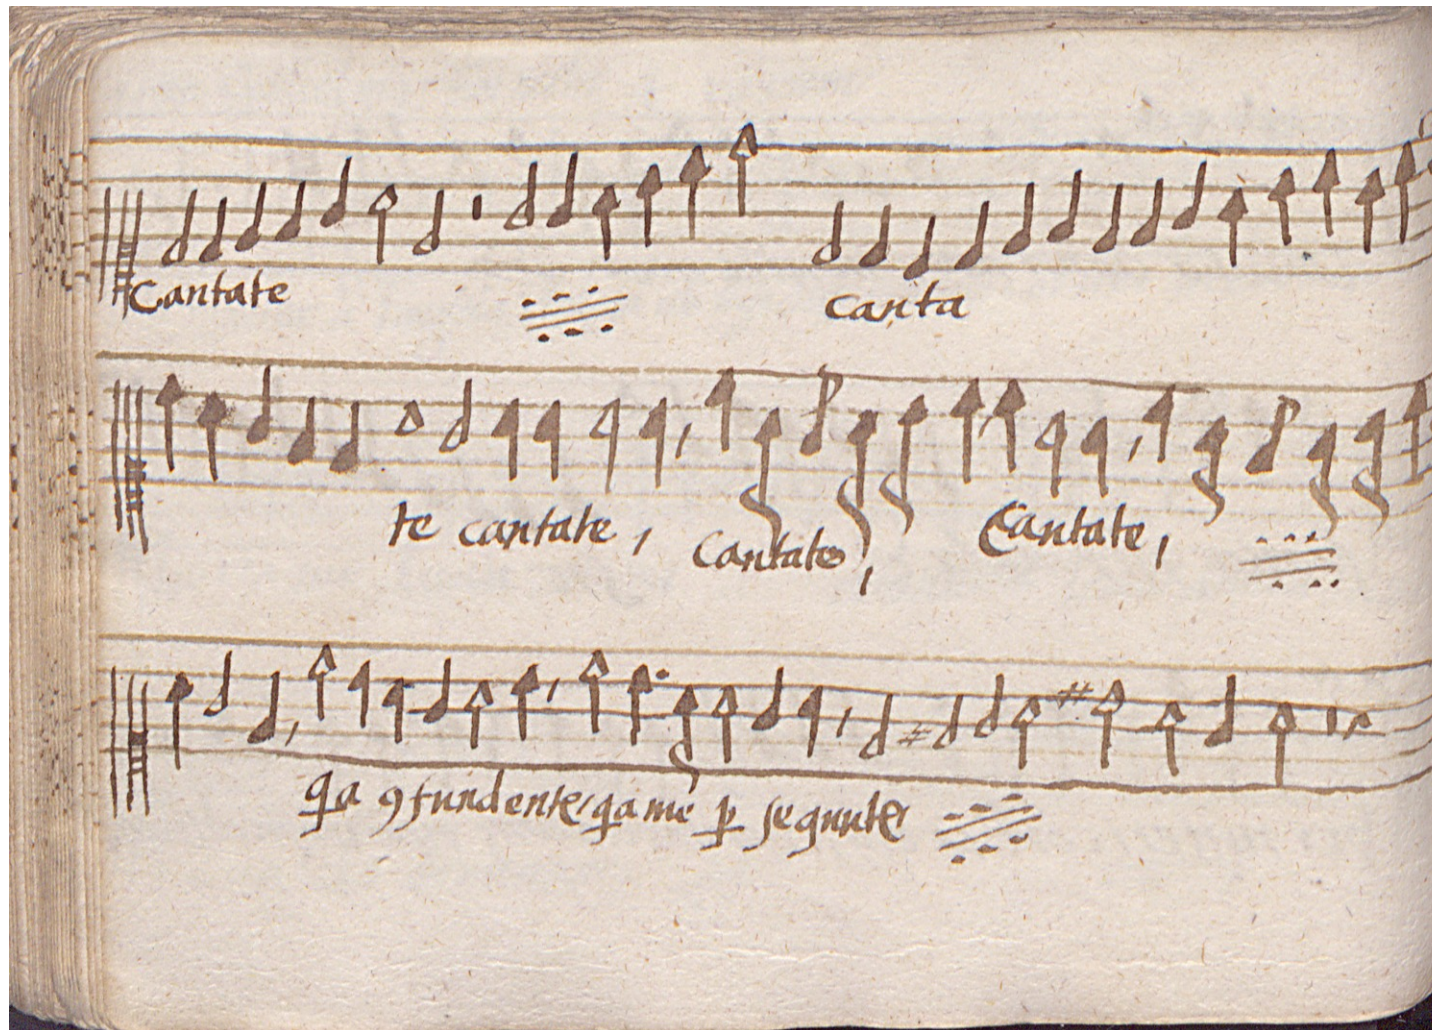 Cantate canta
te cantate, Cantate, Cantate,
qa 9fundente qa me p sequnte